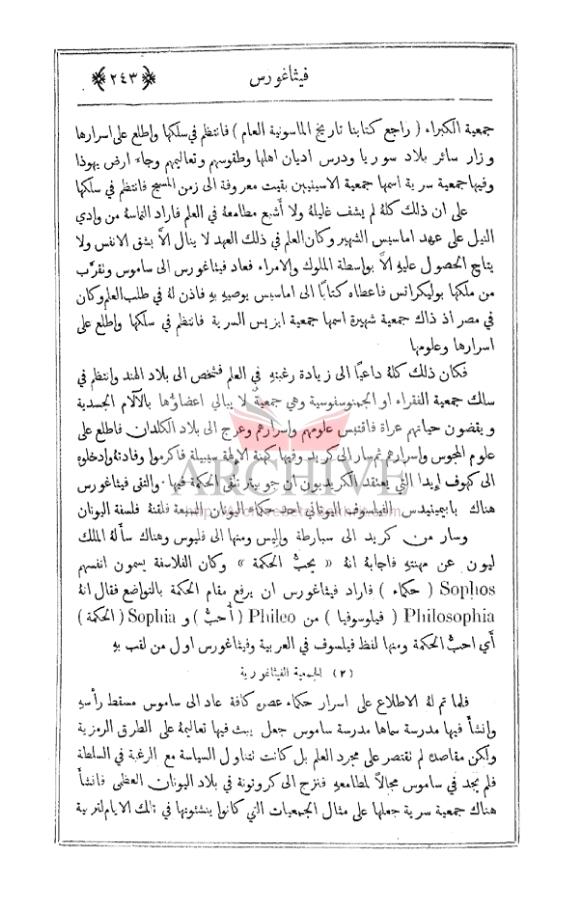 فيثاغورس
﴿٢٤٣﴾
جمعية الكبراء ( راجع كتابنا تاريخ الماسونية العام ) فانتظم في سلكها واطلع على اسرارها
وزار سائر بلاد سوريا ودرس اديان اهلها وطقوسهم وتعاليمهم وجاء ارض يهوذا
وفيها جمعية سرية اسمها جمعية الاسينيين بقيت معروفة الى زمن المسيح فانتظم في سلكها
على ان ذلك كلهُ لم يشف غليلهُ ولا أشبع مطامعهُ في العلم فاراد التماسهُ من وادي
النيل على عهد اماسيس الشهير وكان العلم في ذلك العهد لا ينال الاَّ بشق الانفس ولا
يتاح الحصول عليهِ الاَّ بواسطة الملوك والامراء فعاد فيثاغورس الى ساموس وتقرَّب
من ملكها بوليكراتس فاعطاه كتابًا الى اماسيس يوصيهِ بهِ فاذن لهُ في طلب العلم وكان
في مصر اذ ذاك جمعية شهيرة اسمها جمعية ايزيس السرية فانتظم في سلكها واطلع على
اسرارها وعلومها
فكان ذلك كلهُ داعيًا الى زيادة رغبتهِ في العلم فشخص الى بلاد الهند وانتظم في
سلك جمعية الفقراء او الجمنوسوفسية وهي جمعيةٌ لا يبالي اعضاؤها بالآلام الجسدية
ويقضون حياتهم عراة فاقتبس علومهم واسرارهم وعرج الى بلاد الكلدان فاطلع على
علوم المجوس واسرارهم ثم سار الى كريد وفيها كهنة الالهة سيبيلة فاكرموا وفادتهُ وادخلوه
الى كهوف إيدا التي يعتقد الكريديون ان جوبيتر تلقى الحكمة فيها والتقى فيثاغورس
هناك بابيمينيدس الفيلسوف اليوناني احد حكماء اليونان السبعة فلقنهُ فلسفة اليونان
وسار من كريد الى سبارطة وإليس ومنها الى فليوس وهناك سألهُ الملك
ليون عن مهنتهِ فاجابهُ انهُ « يحبُّ الحكمة » وكان الفلاسفة يسمون انفسهم
Sophos ( حكماء ) فاراد فيثاغورس ان يرفع مقام الحكمة بالتواضع فقال انهُ
Philosophia ( فيلوسوفيا ) من Phileo ( أحبُّ ) و Sophia ( الحكمة )
أي احبُّ الحكمة ومنها لفظ فيلسوف في العربية وفيثاغورس اول من لقب بهِ
(٢) الجمعية الفيثاغورية
فلما تم لهُ الاطلاع على اسرار حكماء عصره كافة عاد الى ساموس مسقط رأسهِ
وانشأ فيها مدرسة سماها مدرسة ساموس جعل يبث فيها تعاليمهُ على الطرق الرمزية
ولكن مقاصدهُ لم تقتصر على مجرد العلم بل كانت تتناول السياسة مع الرغبة في السلطة
فلم يجد في ساموس مجالاً لمطامعهِ فنزح الى كروتونة في بلاد اليونان العظمى فانشأ
هناك جمعية سرية جعلها على مثال الجمعيات التي كانوا ينشئونها في تلك الايام لتربية
ARCHIVE